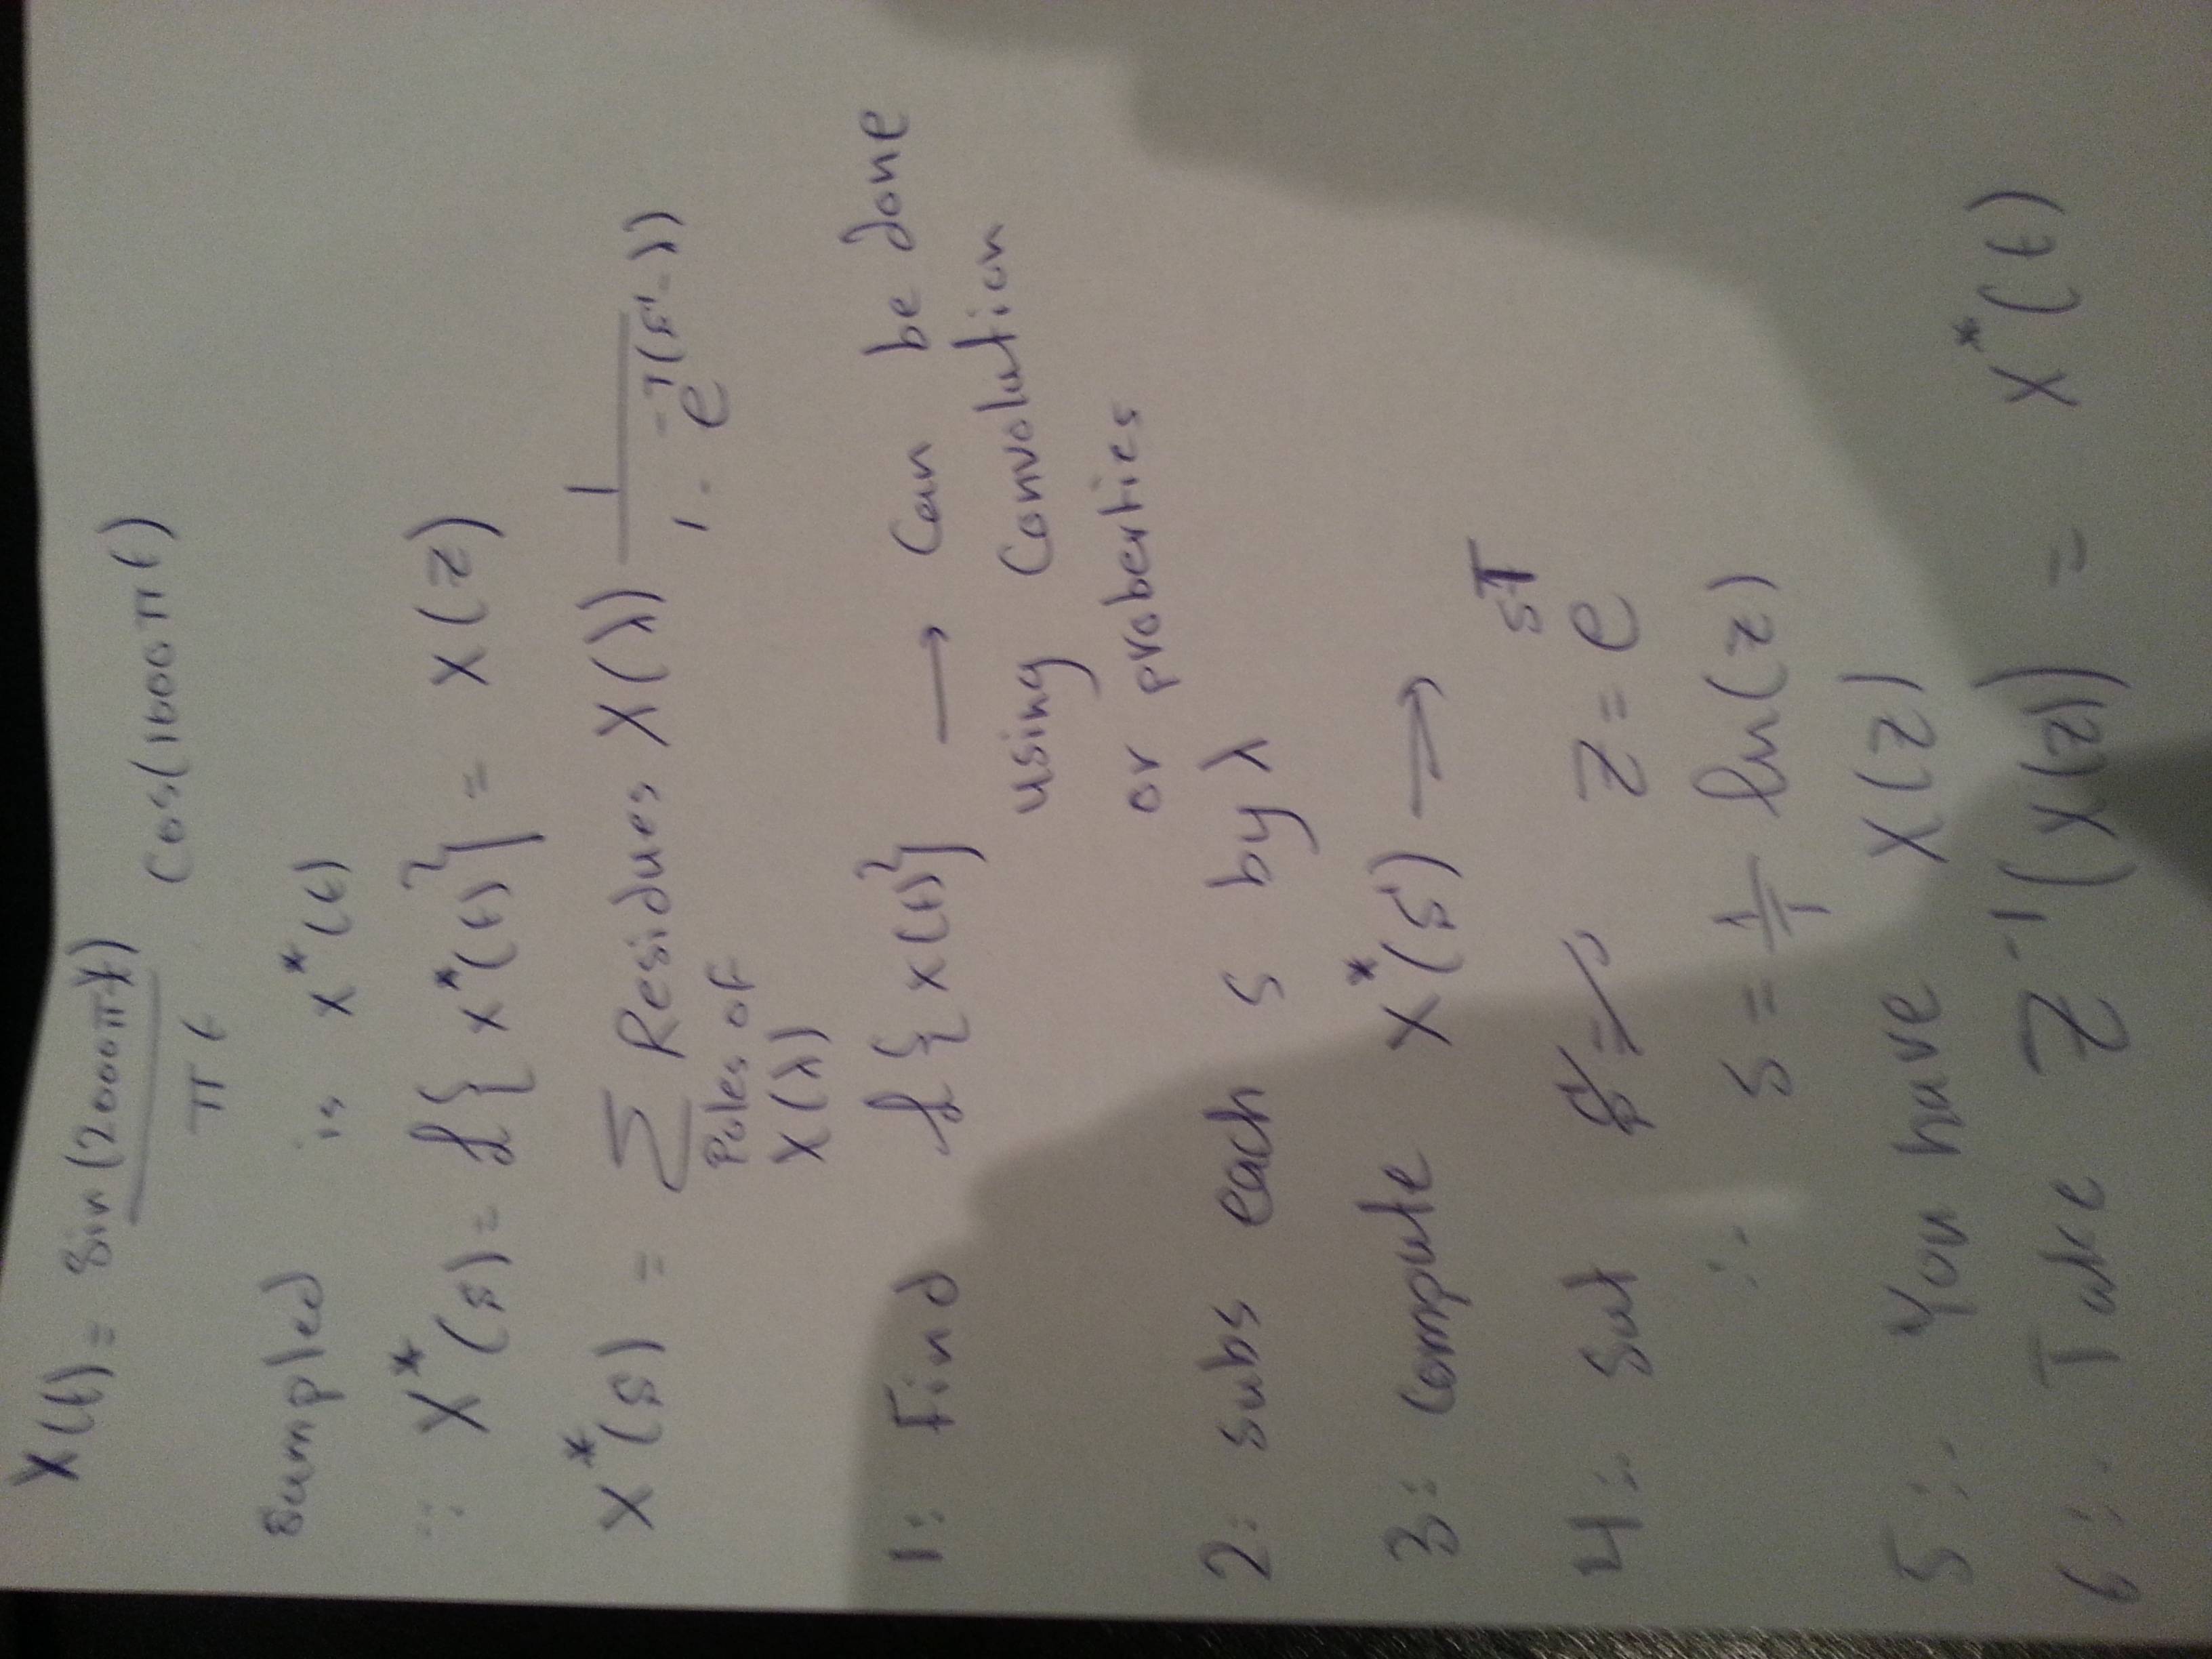 x(t) = sin(2000πt) / πt cos(1000πt)
sampled is x*(t)
∴ X*(s) = ℒ{x*(t)} = X(z)
X*(s) = Σ Residues X(λ) 1 / 1 - e^-T(s-λ)
Poles of
X(λ)
1:: Find ℒ{x(t)} → Can be done
using Convolution
or proberties
2: subs each s by λ
3:: compute X*(s) →
4:: sut z = e^sT
∴ s = 1/T ln(z)
5:: You have X(z)
6:: Take Z^-1(X(z)) = x*(t)